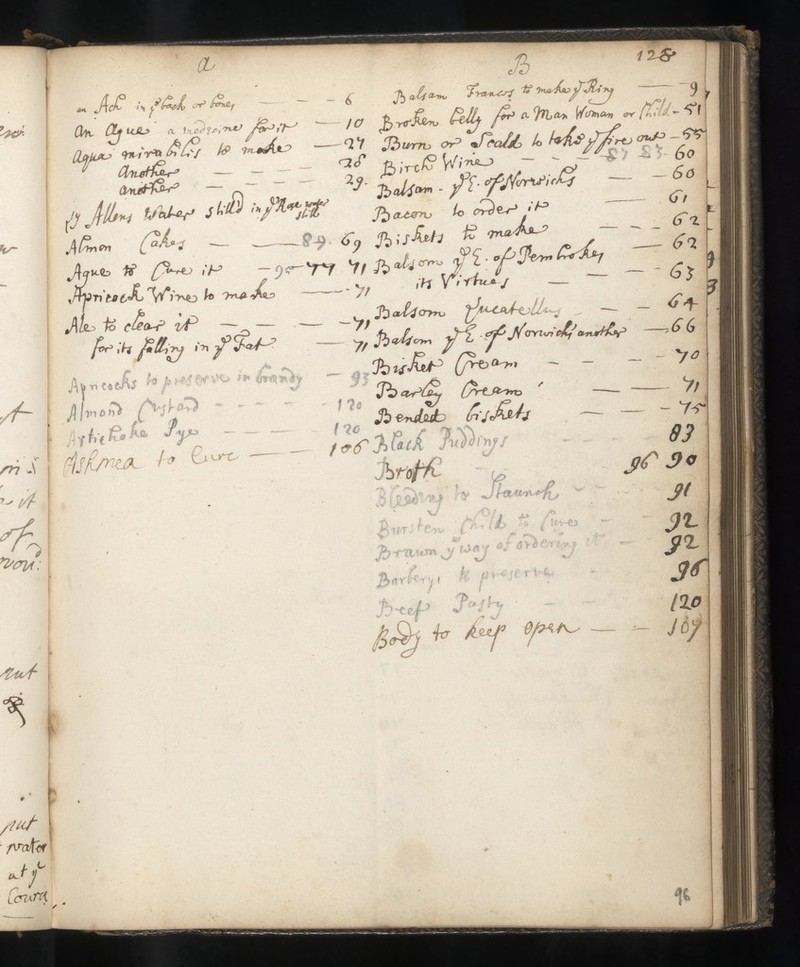 128
a
an Ach in ye back or bones — — — 6
An Ague a medecine for it — 10
Aqua mirabilis to make — 27
Another — — — — 28
another — — — — 29.
Dr Allens Water still'd in ye Rose water still
Almon Cakes — — 89. 69
Ague to Cure it — 90 — 77 71
Apricock Wine to make — - 71
Ale to clear it — — — — 71
for its falling in ye Fat — 71
Apricocks to preserve in brandy — 93
Almond Custard — - - - 120
Artichoke Pye — — — — 120
Ashmea to Cure — — — 106
B
Balsam Frances to make ye King — 9
Broken belly for a Man Woman or Child - 51
Burn or Scald to take ye fire out — 55
Birch Wine — — - 87 83 - 60
Balsam - ye E. of Norwichs — — 60
Bacon to order it — — 61
Biskets to make — — - 62
Balsom ye E. of Pembrokes — 62
its Virtues — — — - 63
Balsom Lucatellus — — 64
Balsom ye E. of Norwichs another — 66
Bisket Cream — — — - 70
Barley Cream — — 71
Bended biskets — — - 75
Black Puddings - - - 83
Broth 96 90
Bleeding to Staunch - - - 91
Bursten Child to Cure — - 92
Brawn ye way of ordering it — 92
Barberys to preserve - 96
Beef Pasty - — 120
Body to keep open — — 107
96
put
water
at ye